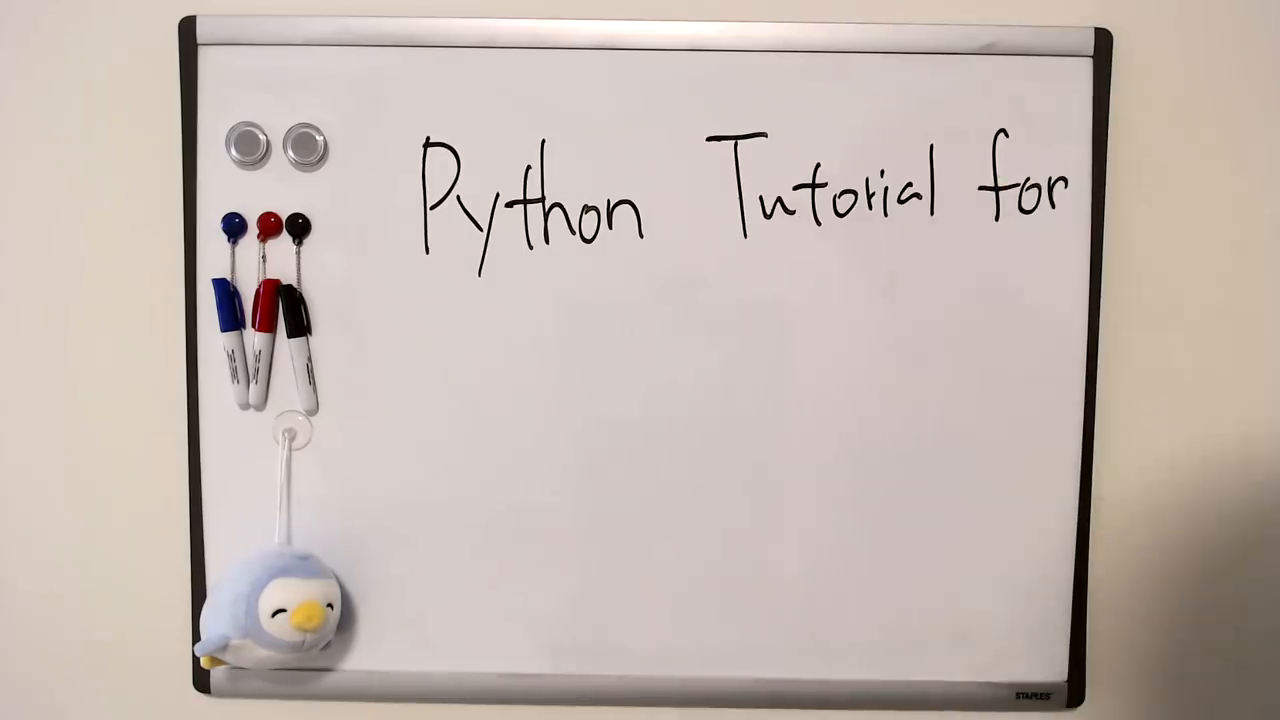 Python Tutorial for
STAPLES